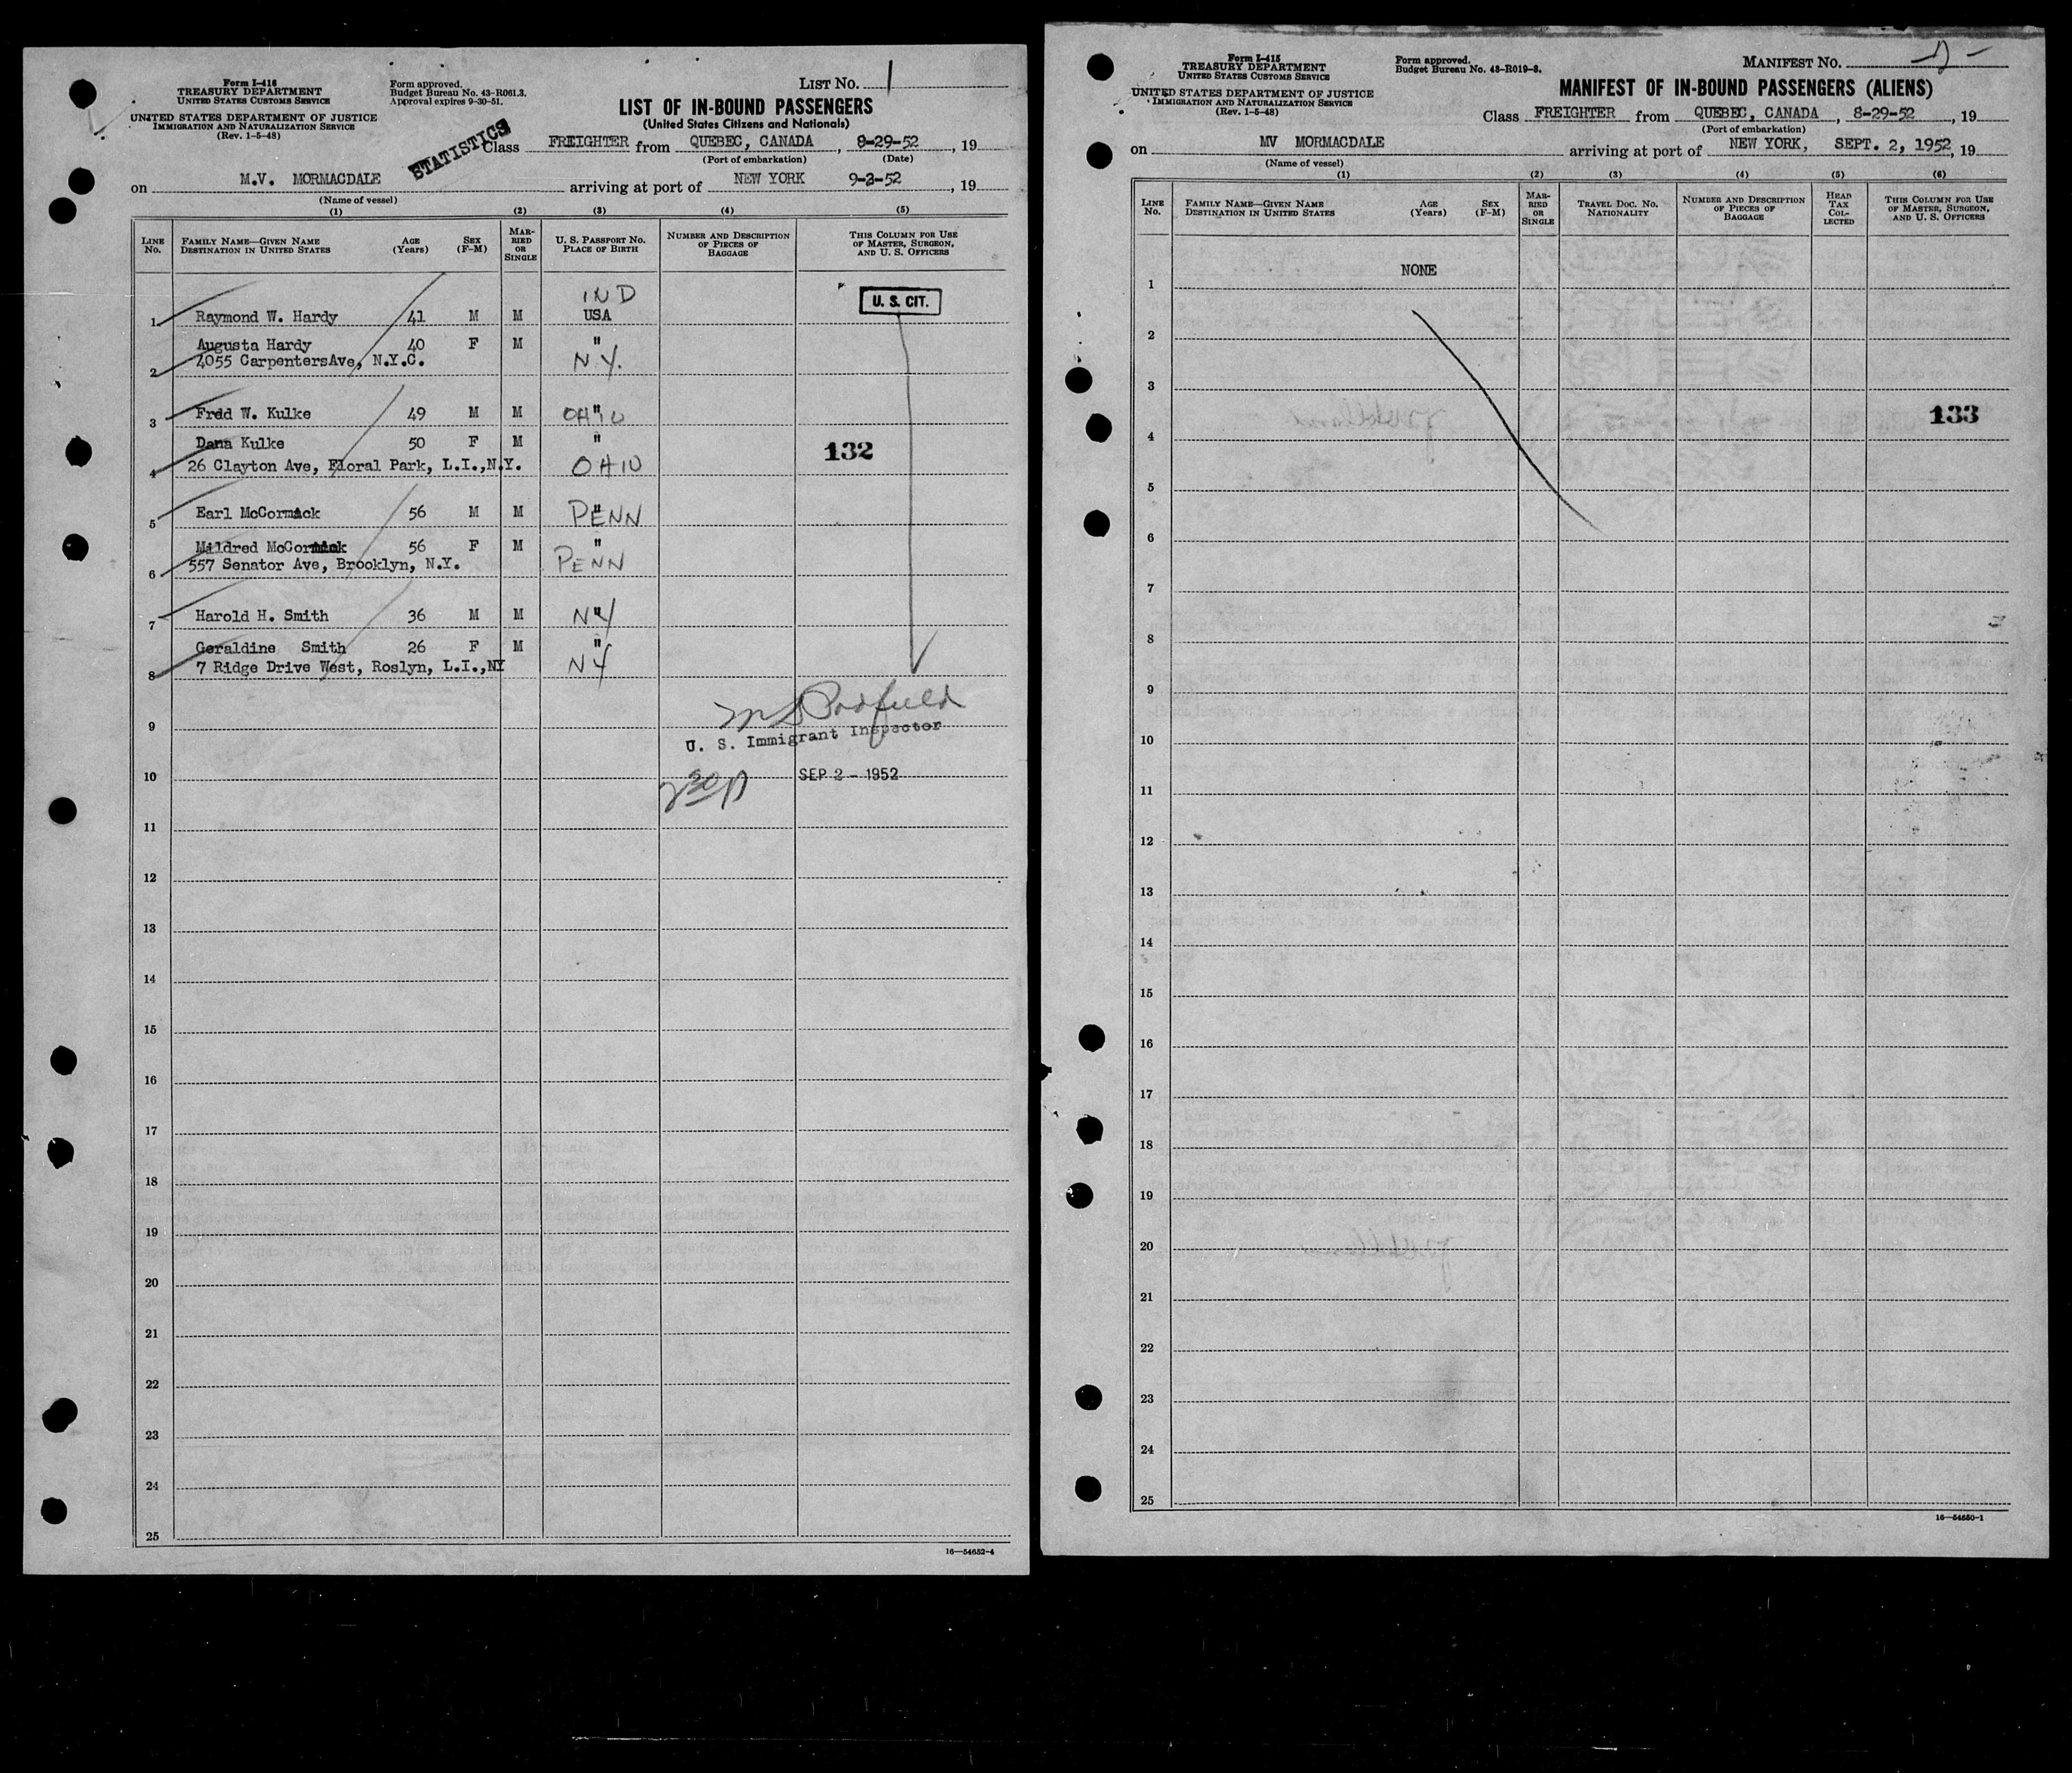 Form I-416
TREASURY DEPARTMENT
UNITED STATES CUSTOMS SERVICE
UNITED STATES DEPARTMENT OF JUSTICE
IMMIGRATION AND NATURALIZATION SERVICE
(Rev. 1-5-48)
Form approved.
Budget Bureau No. 43-R061.3.
Approval expires 9-30-51.
LIST NO. 1
LIST OF IN-BOUND PASSENGERS
(United States Citizens and Nationals)
STATISTICS
Class FREIGHTER from QUEBEC, CANADA, 8-29-52, 19
(Port of embarkation) (Date)
on M.V. MORMACDALE arriving at port of NEW YORK 9-2-52, 19
(Name of vessel)
(1) (2) (3) (4) (5)
LINE NO. FAMILY NAME—GIVEN NAME DESTINATION IN UNITED STATES AGE (Years) SEX (F-M) MARRIED OR SINGLE U. S. PASSPORT NO. PLACE OF BIRTH NUMBER AND DESCRIPTION OF PIECES OF BAGGAGE THIS COLUMN FOR USE OF MASTER, SURGEON, AND U. S. OFFICERS
IND
U. S. CIT.
1 Raymond W. Hardy 41 M M USA
Augusta Hardy 40 F M "
2 4055 CarpentersAve, N.Y.C. N.Y.
3 Fred W. Kulke 49 M M " OHIO
Dana Kulke 50 F M "
132
4 26 Clayton Ave, Floral Park, L.I.,N.Y. OHIO
5 Earl McCormack 56 M M " PENN
Mildred McCormick 56 F M "
6 557 Senator Ave, Brooklyn, N.Y. PENN
7 Harold H. Smith 36 M M " NY
Geraldine Smith 26 F M "
8 7 Ridge Drive West, Roslyn, L.I.,NY NY
9
U. S. Immigrant Inspector
10 SEP 2 - 1952
11
12
13
14
15
16
17
18
19
20
21
22
23
24
25
16—54652-4
Form I-415
TREASURY DEPARTMENT
UNITED STATES CUSTOMS SERVICE
UNITED STATES DEPARTMENT OF JUSTICE
IMMIGRATION AND NATURALIZATION SERVICE
(Rev. 1-5-48)
Form approved.
Budget Bureau No. 43-R019-3.
MANIFEST NO.
MANIFEST OF IN-BOUND PASSENGERS (ALIENS)
Class FREIGHTER from QUEBEC, CANADA, 8-29-52, 19
(Port of embarkation)
on MV MORMACDALE arriving at port of NEW YORK, SEPT. 2, 1952, 19
(Name of vessel)
(1) (2) (3) (4) (5) (6)
LINE NO. FAMILY NAME—GIVEN NAME DESTINATION IN UNITED STATES AGE (Years) SEX (F-M) MARRIED OR SINGLE TRAVEL DOC. NO. NATIONALITY NUMBER AND DESCRIPTION OF PIECES OF BAGGAGE HEAD TAX COLLECTED THIS COLUMN FOR USE OF MASTER, SURGEON, AND U. S. OFFICERS
NONE
1
2
3
133
4
5
6
7
8
9
10
11
12
13
14
15
16
17
18
19
20
21
22
23
24
25
16—54650-1